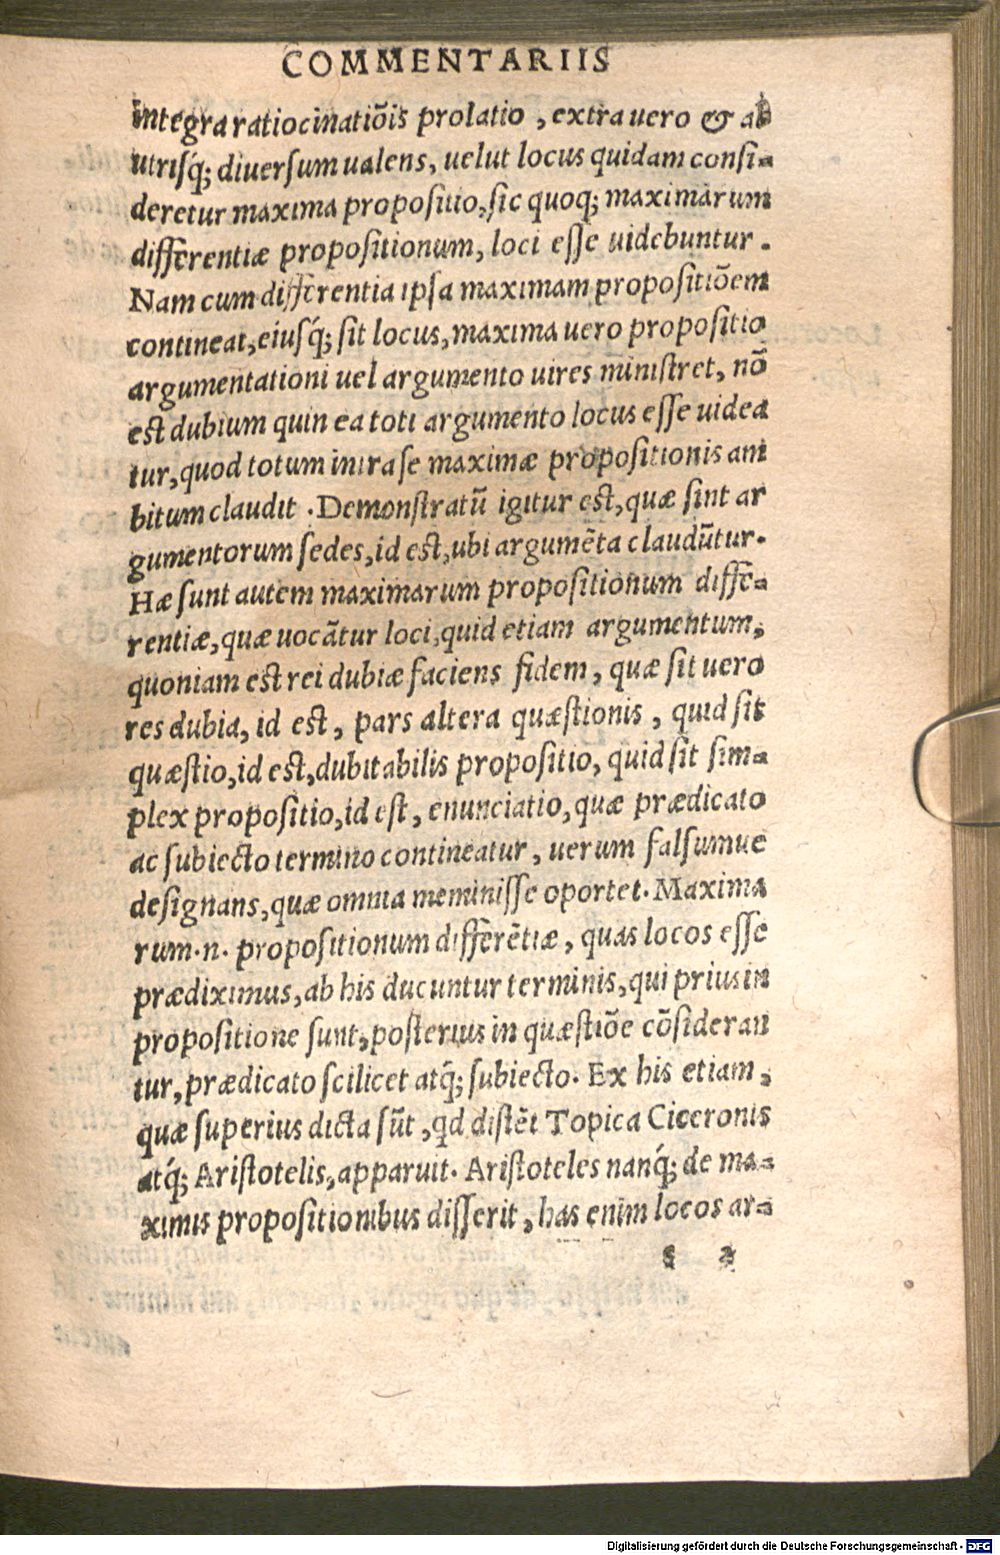 COMMENTARIIS
integra ratiocinatiõis prolatio, extra uero & ab
utrisq́; diuersum ualens, uelut locus quidam consi-
deretur maxima propositio, sic quoq; maximarum
differentiæ propositionum, loci esse uidebuntur.
Nam cum differentia ipsa maximam propositiõem
contineat, eiusq́; sit locus, maxima uero propositio
argumentationi uel argumento uires ministret, nõ
est dubium quin ea toti argumento locus esse uidea
tur, quod totum intra se maximæ propositionis am
bitum claudit. Demonstratũ igitur est, quæ sint ar
gumentorum sedes, id est, ubi argumẽta claudũtur.
Hæ sunt autem maximarum propositionum diffe-
rentiæ, quæ uocãtur loci, quid etiam argumentum,
quoniam est rei dubiæ faciens fidem, quæ sit uero
res dubia, id est, pars altera quæstionis, quid sit
quæstio, id est, dubitabilis propositio, quid sit sim-
plex propositio, id est, enunciatio, quæ prædicato
ac subiecto termino contineatur, uerum falsumue
designans, quæ omnia meminisse oportet. Maxima
rum.n. propositionum differẽtiæ, quas locos esse
prædiximus, ab his ducuntur terminis, qui prius in
propositione sunt, posterius in quæstiõe cõsideran
tur, prædicato scilicet atq́; subiecto. Ex his etiam,
quæ superius dicta sũt, qd distẽt Topica Ciceronis
atq́; Aristotelis, apparuit. Aristoteles nanq́; de ma-
ximis propositionibus disserit, has enim locos ar-
s 2
Digitalisierung gefördert durch die Deutsche Forschungsgemeinschaft - DFG